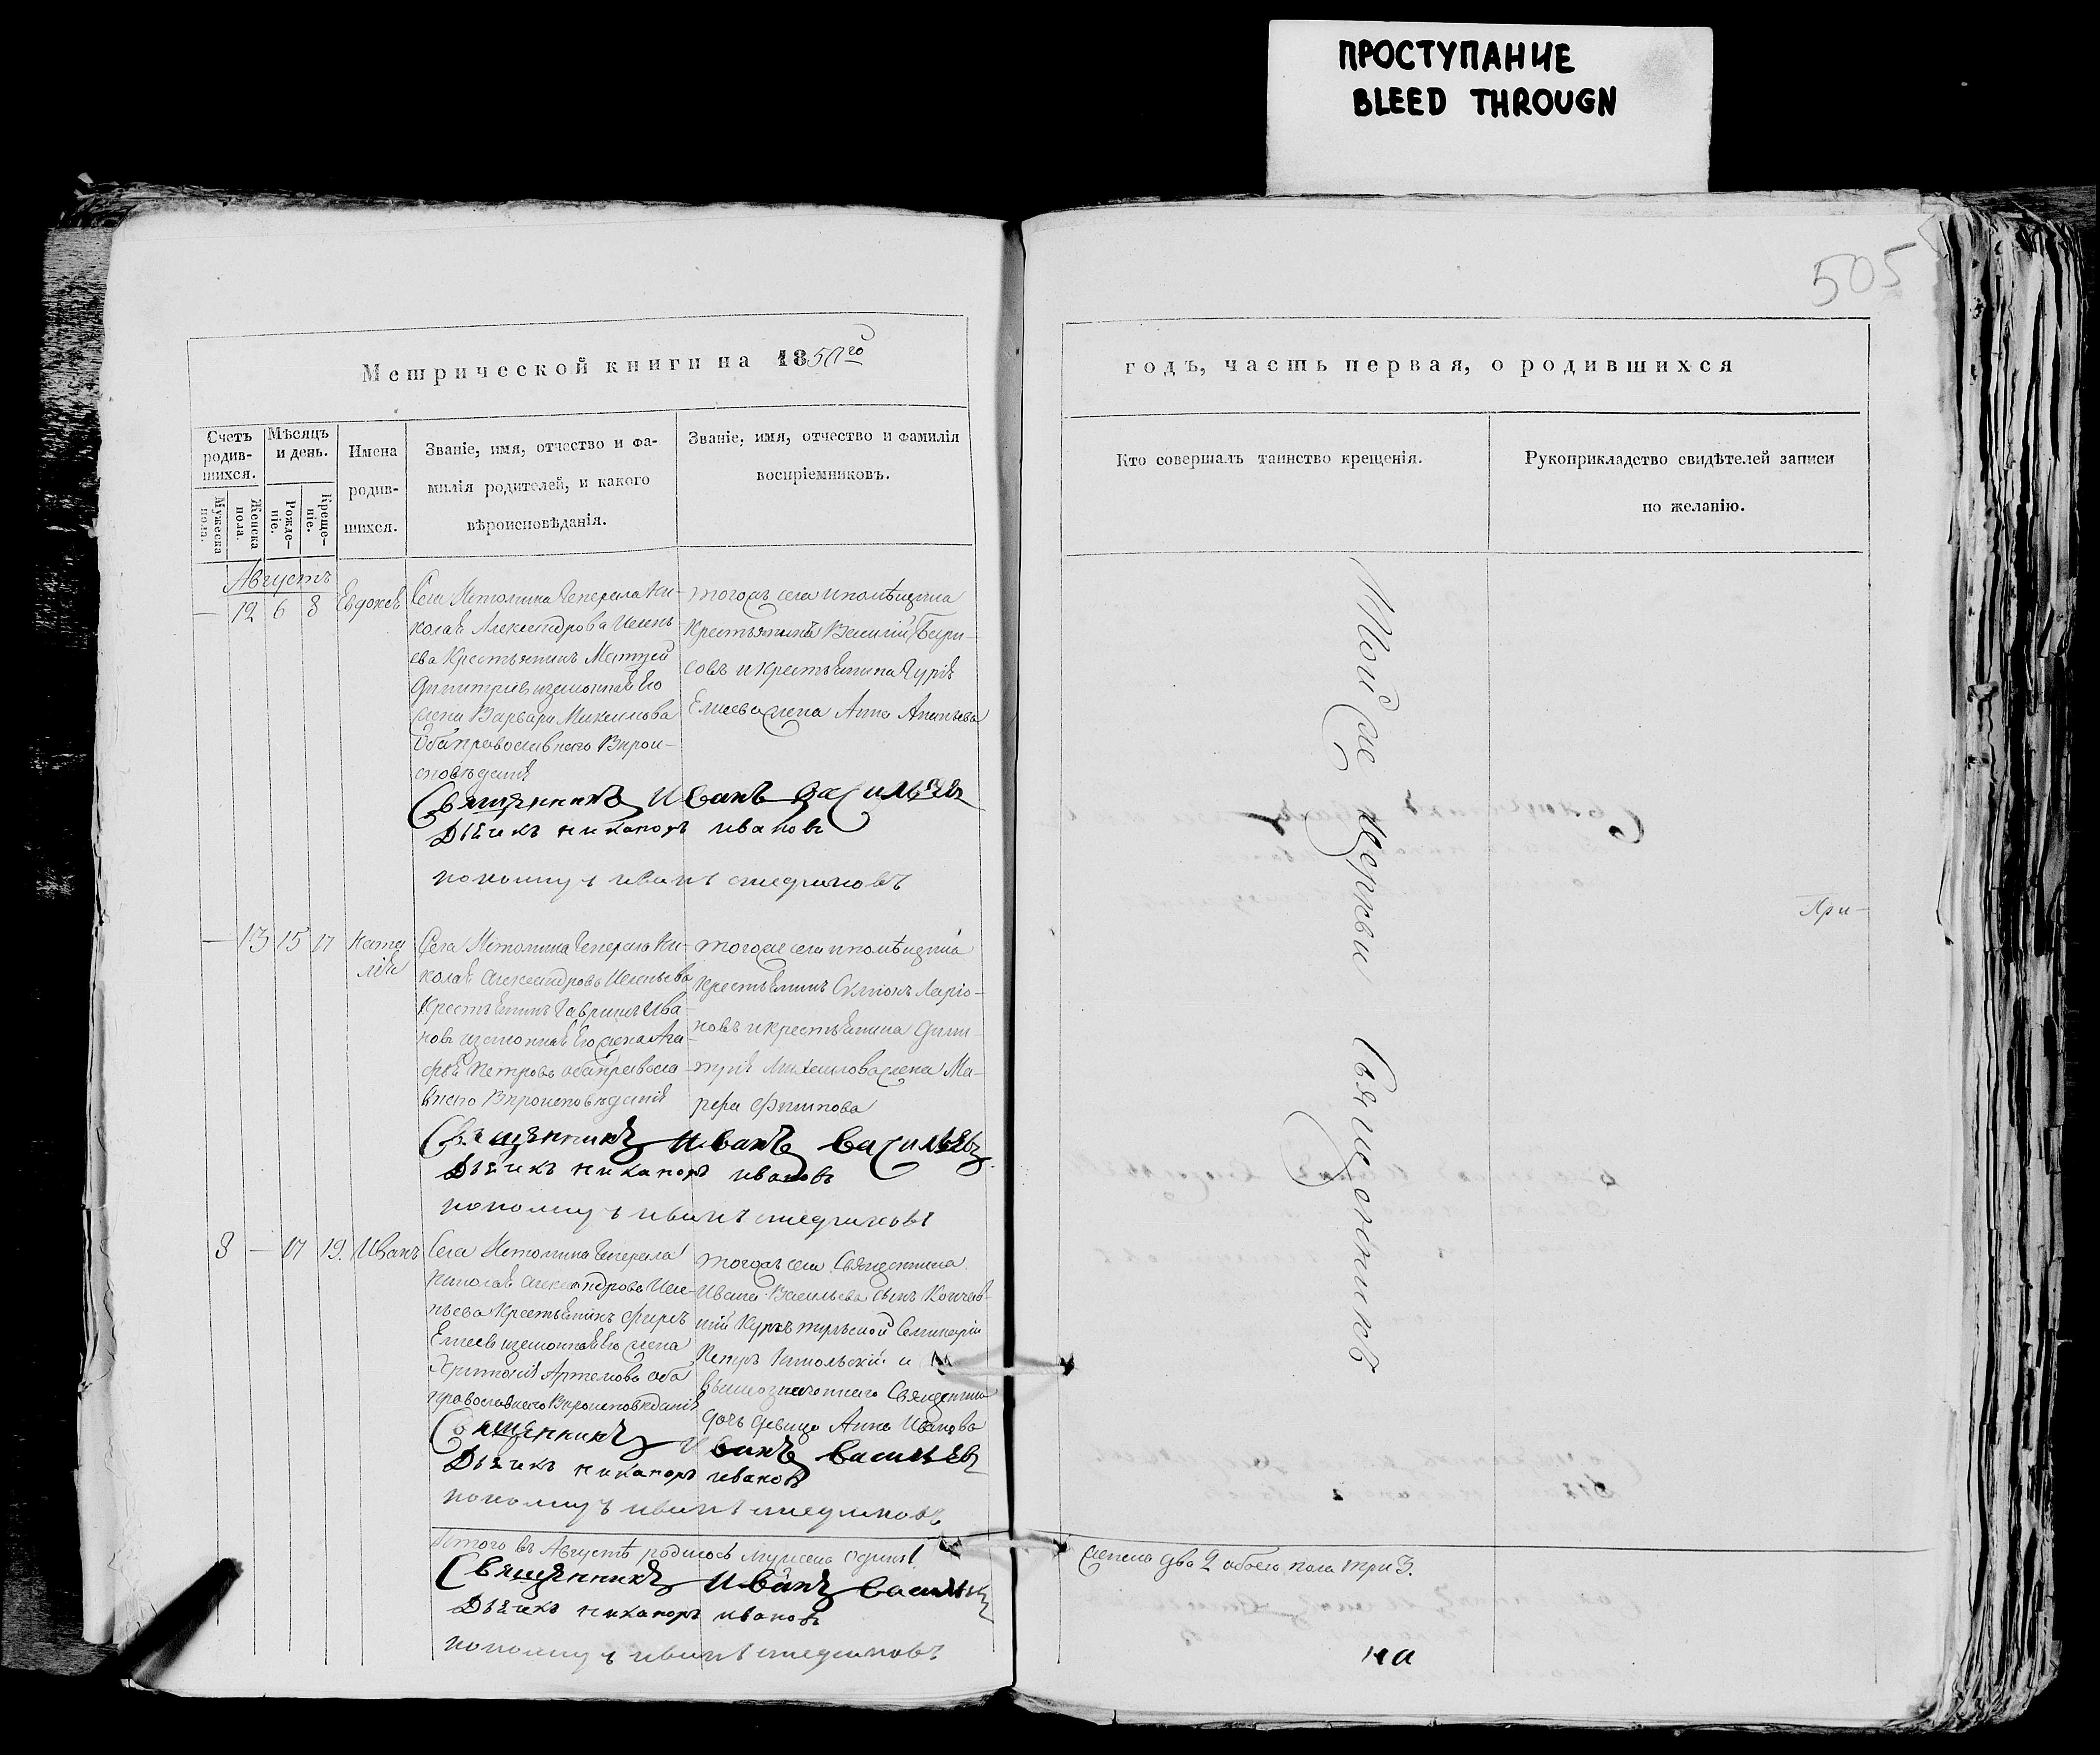 ПРОСТУПАНИЕ
BLEED THROUGN
505
Метрической книги на 1850го
годъ, часть первая, о родившихся
Счетъ родив-шихся.
Мужеска пола.
Женска пола.
Мѣсяцъ и день.
Рожде-ніе.
Креще-ніе.
Имена
родив-
шихся.
Званіе, имя, отчество и фа-
милія родителей, и какого
вѣроисповѣданія.
Званіе, имя, отчество и фамилія
воспріемниковъ.
Кто совершалъ таинство крещенія.
Рукоприкладство свидѣтелей записи
по желанію.
Августъ
— 12 6 8
Села Генерала Ни-
колая Александрова
Крестьянинъ Матвей
Димитріевъ и законная Его
жена Варвара
Оба православнаго Вѣрои-
сповѣданія
тогожъ села и помѣщика
Крестьянинъ Василій Бори-
совъ и крестьянина Гурія
Елисева жена Анна Ананьева
Священникъ Иванъ Васильевъ
Дьячикъ никаноръ ивановъ
пономарь иванъ
— 13 15 17 Ната
лія
Села Генерала Ни-
колая Александрова
Крестьянинъ Гаврилъ Ива
новъ и законная Его жена Ага
фья Петрова оба правосла
внаго Вѣроисповѣданія
тогожъ села и помѣщика
крестьянинъ Ларіо-
новъ и крестьянина Дими
трія Михаилова жена Ма-
рфа Филипова
Священникъ Иванъ Васильевъ
Дьячикъ никаноръ ивановъ
пономарь иванъ
8 — 17 19. Иванъ
Села Генерала
Николая Александрова
Крестьянинъ
Елисеев и законная Его жена
Артемова оба
православнаго Вѣроисповѣданія
тогожъ села Священника
Ивана Васильева сынъ Кончав-
шій Курсъ тульской Семинаріи
Петръ и
вышеозначеннаго Священника
дочь девица Анна Иванова
Священникъ Иванъ Васильевъ
Дьячикъ никаноръ ивановъ
пономарь иванъ
Итого въ Августѣ родилось мужеска одинъ 1
женска два 2 обоего пола три 3.
Священникъ Иванъ Васильевъ
Дьячикъ никаноръ ивановъ
пономарь иванъ
Той же церкви Священникъ
При-
на